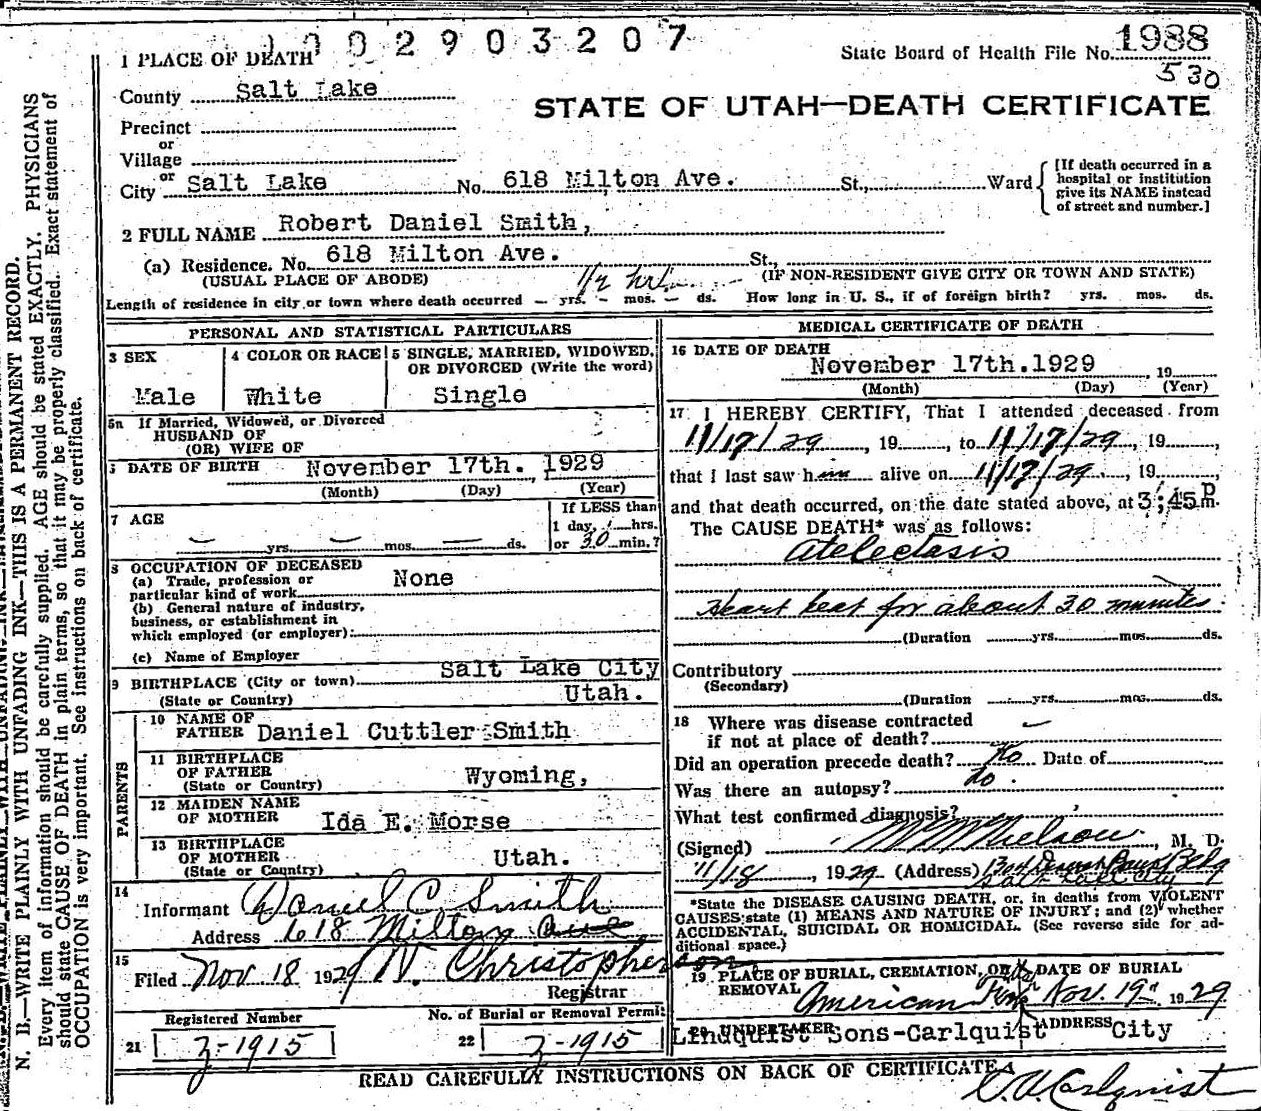 1002903207
State Board of Health File No. 1988
530
1 PLACE OF DEATH
County Salt Lake
STATE OF UTAH—DEATH CERTIFICATE
Precinct
or
Village
or
City Salt Lake No. 618 Milton Ave. St., Ward
[If death occurred in a hospital or institution give its NAME instead of street and number.]
2 FULL NAME Robert Daniel Smith,
(a) Residence. No. 618 Milton Ave. St.,
(USUAL PLACE OF ABODE) 1/2 hr. (IF NON-RESIDENT GIVE CITY OR TOWN AND STATE)
Length of residence in city or town where death occurred — yrs. — mos. — ds. How long in U. S., if of foreign birth? yrs. mos. ds.
PERSONAL AND STATISTICAL PARTICULARS
3 SEX
Male
4 COLOR OR RACE
White
5 SINGLE, MARRIED, WIDOWED, OR DIVORCED (Write the word)
Single
5a If Married, Widowed, or Divorced
HUSBAND OF
(OR) WIFE OF
6 DATE OF BIRTH November 17th. 1929
(Month) (Day) (Year)
7 AGE
— yrs. — mos. — ds.
If LESS than
1 day, — hrs.
or 30 min.?
8 OCCUPATION OF DECEASED
(a) Trade, profession or
particular kind of work None
(b) General nature of industry,
business, or establishment in
which employed (or employer):
(c) Name of Employer
9 BIRTHPLACE (City or town) Salt Lake City
(State or Country) Utah.
PARENTS
10 NAME OF
FATHER Daniel Cuttler Smith
11 BIRTHPLACE
OF FATHER Wyoming,
(State or Country)
12 MAIDEN NAME
OF MOTHER Ida E. Morse
13 BIRTHPLACE
OF MOTHER Utah.
(State or Country)
14
Informant Daniel C. Smith
Address 618 Milton Ave
15
Filed Nov 18 1929 N. Christopherson
Registrar
Registered Number
21 z-1915
No. of Burial or Removal Permit
22 z-1915
MEDICAL CERTIFICATE OF DEATH
16 DATE OF DEATH
November 17th.1929, 19
(Month) (Day) (Year)
17 I HEREBY CERTIFY, That I attended deceased from
11/17/29, 19, to 11/17/29, 19,
that I last saw him alive on 11/17/29, 19,
and that death occurred, on the date stated above, at 3;45 P m.
The CAUSE DEATH* was as follows:
Atelectasis
Heart beat for about 30 minutes.
(Duration yrs. mos. ds.
Contributory
(Secondary)
(Duration yrs. mos. ds.
18 Where was disease contracted
if not at place of death? —
Did an operation precede death? No Date of
Was there an autopsy? No.
What test confirmed diagnosis?
(Signed) M M Nielson, M. D.
11/18, 1929 (Address) 1304 Deseret Bank Bldg
Salt Lake City
*State the DISEASE CAUSING DEATH, or, in deaths from VIOLENT
CAUSES state (1) MEANS AND NATURE OF INJURY; and (2) whether
ACCIDENTAL, SUICIDAL OR HOMICIDAL. (See reverse side for ad-
ditional space.)
19 PLACE OF BURIAL, CREMATION, OR
REMOVAL American Fork
DATE OF BURIAL
Nov. 19" 1929
20 UNDERTAKER
Lindquist Sons-Carlquist
ADDRESS City
READ CAREFULLY INSTRUCTIONS ON BACK OF CERTIFICATE
C. A. Carlquist
N. B.—WRITE PLAINLY WITH UNFADING INK—THIS IS A PERMANENT RECORD.
Every item of information should be carefully supplied. AGE should be stated EXACTLY. PHYSICIANS
should state CAUSE OF DEATH in plain terms, so that it may be properly classified. Exact statement of
OCCUPATION is very important. See instructions on back of certificate.